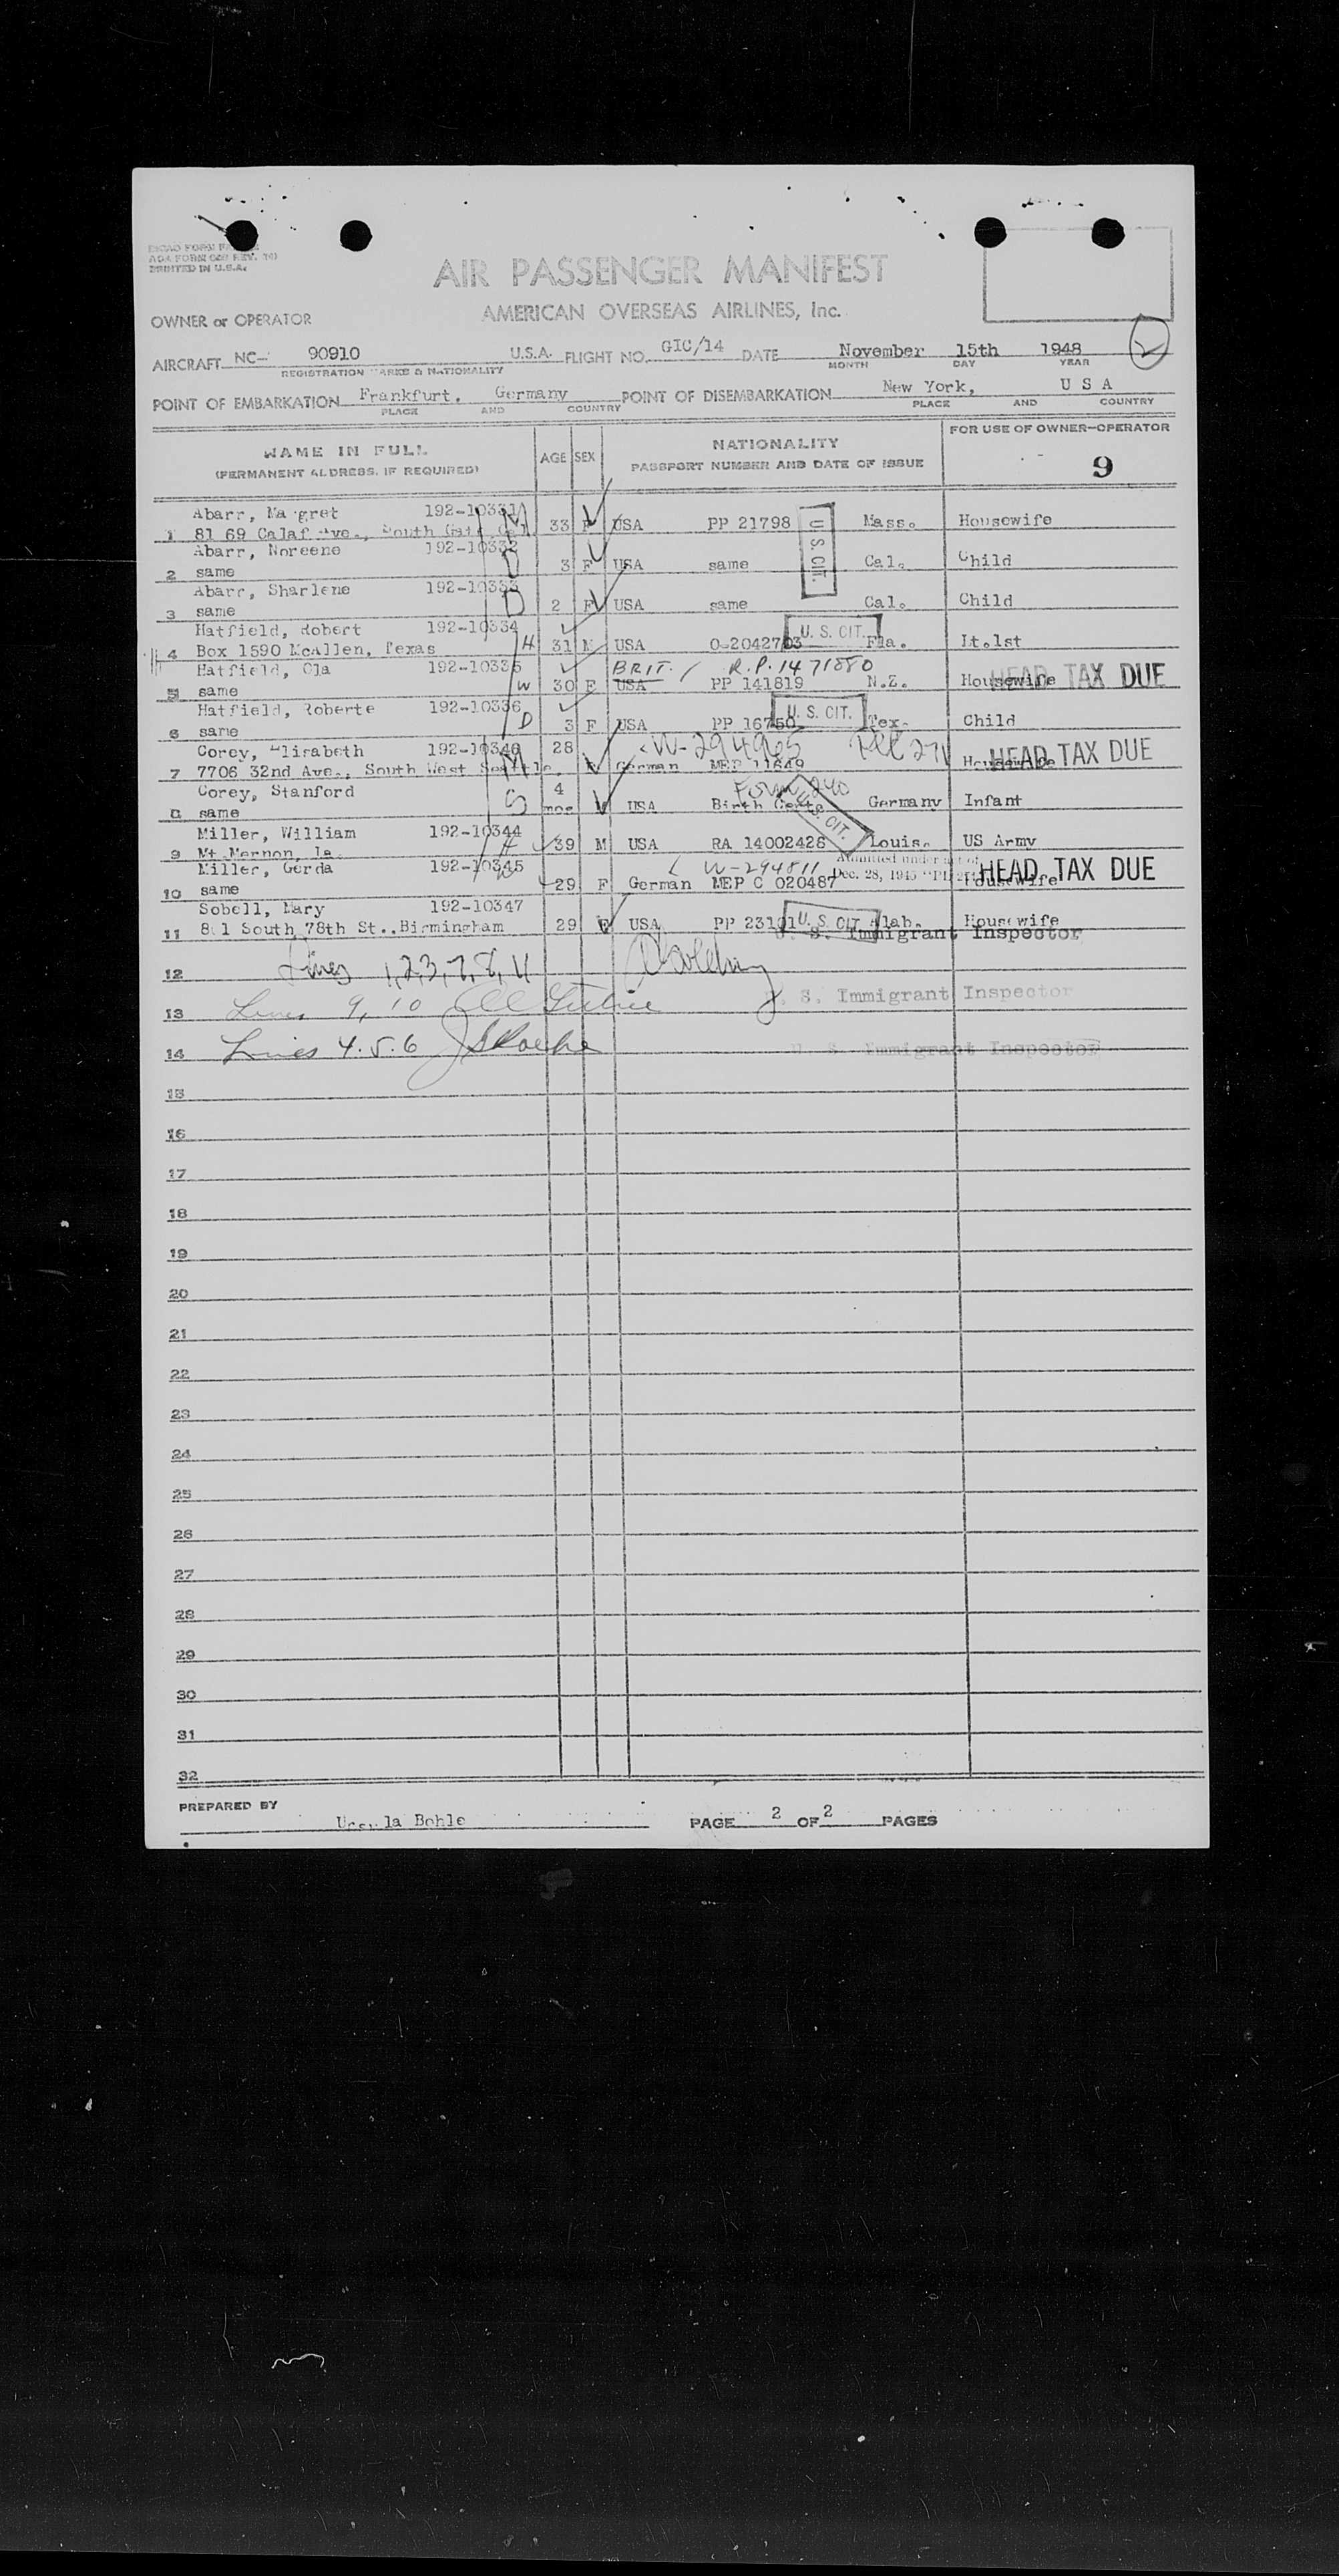 PRINTED IN U.S.A.
AIR PASSENGER MANIFEST
AMERICAN OVERSEAS AIRLINES, Inc.
OWNER or OPERATOR
AIRCRAFT NC- 90910 U.S.A. FLIGHT NO. GIC/14 DATE November 15th 1948
REGISTRATION MARKS & NATIONALITY MONTH DAY YEAR
POINT OF EMBARKATION Frankfurt, Germany POINT OF DISEMBARKATION New York, U S A
PLACE AND COUNTRY PLACE AND COUNTRY
NAME IN FULL AGE SEX NATIONALITY FOR USE OF OWNER-OPERATOR
(PERMANENT ADDRESS, IF REQUIRED) PASSPORT NUMBER AND DATE OF ISSUE 9
Abarr, Margret 192-10331 M
1 81 69 Ave., South 33 F USA PP 21798 U S. CIT. Mass. Housewife
Abarr, Noreene 192-10332
2 same D 3 F USA same Cal. Child
Abarr, Sharlene 192-10333
3 same D 2 F USA same Cal. Child
Hatfield, Robert 192-10334 U. S. CIT.
4 Box 1590 McAllen, Texas H 31 M USA O-2042703 Fla. Lt.1st
Hatfield, Ola 192-10335 BRIT. R.P. 1471880
5 same W 30 F USA PP 141819 N.Z. Housewife HEAD TAX DUE
Hatfield, Roberte 192-10336 U. S. CIT.
6 same D 3 F USA PP 16750 Tex. Child
Corey, Elisabeth 192-10340 28 W-294965 HEAD TAX DUE
7 7706 32nd Ave., South West Seattle M F German MEP 11649 Housewife
Corey, Stanford 4 Form 240
8 same S mos M USA Birth Certe U.S. CIT. Germany Infant
Miller, William 192-10344
9 Mt. Mernon, Ia. H 39 M USA RA 14002428 Louis. US Army
Miller, Gerda 192-10345 W-294811 Admitted under act of HEAD TAX DUE
10 same 29 F German MEP C 020487 Dec. 28, 1945 Housewife
Sobell, Mary 192-10347
11 South 78th St., Birmingham 29 F USA PP 23101 U. S. CIT. Alab. Housewife
U. S. Immigrant Inspector
12 Lines 1,2,3,7,8,11
U. S. Immigrant Inspector
13 Lines 9, 10
14 Lines 4.5.6 U. S. Immigrant Inspector
15
16
17
18
19
20
21
22
23
24
25
26
27
28
29
30
31
32
PREPARED BY Ursula Bohle PAGE 2 OF 2 PAGES